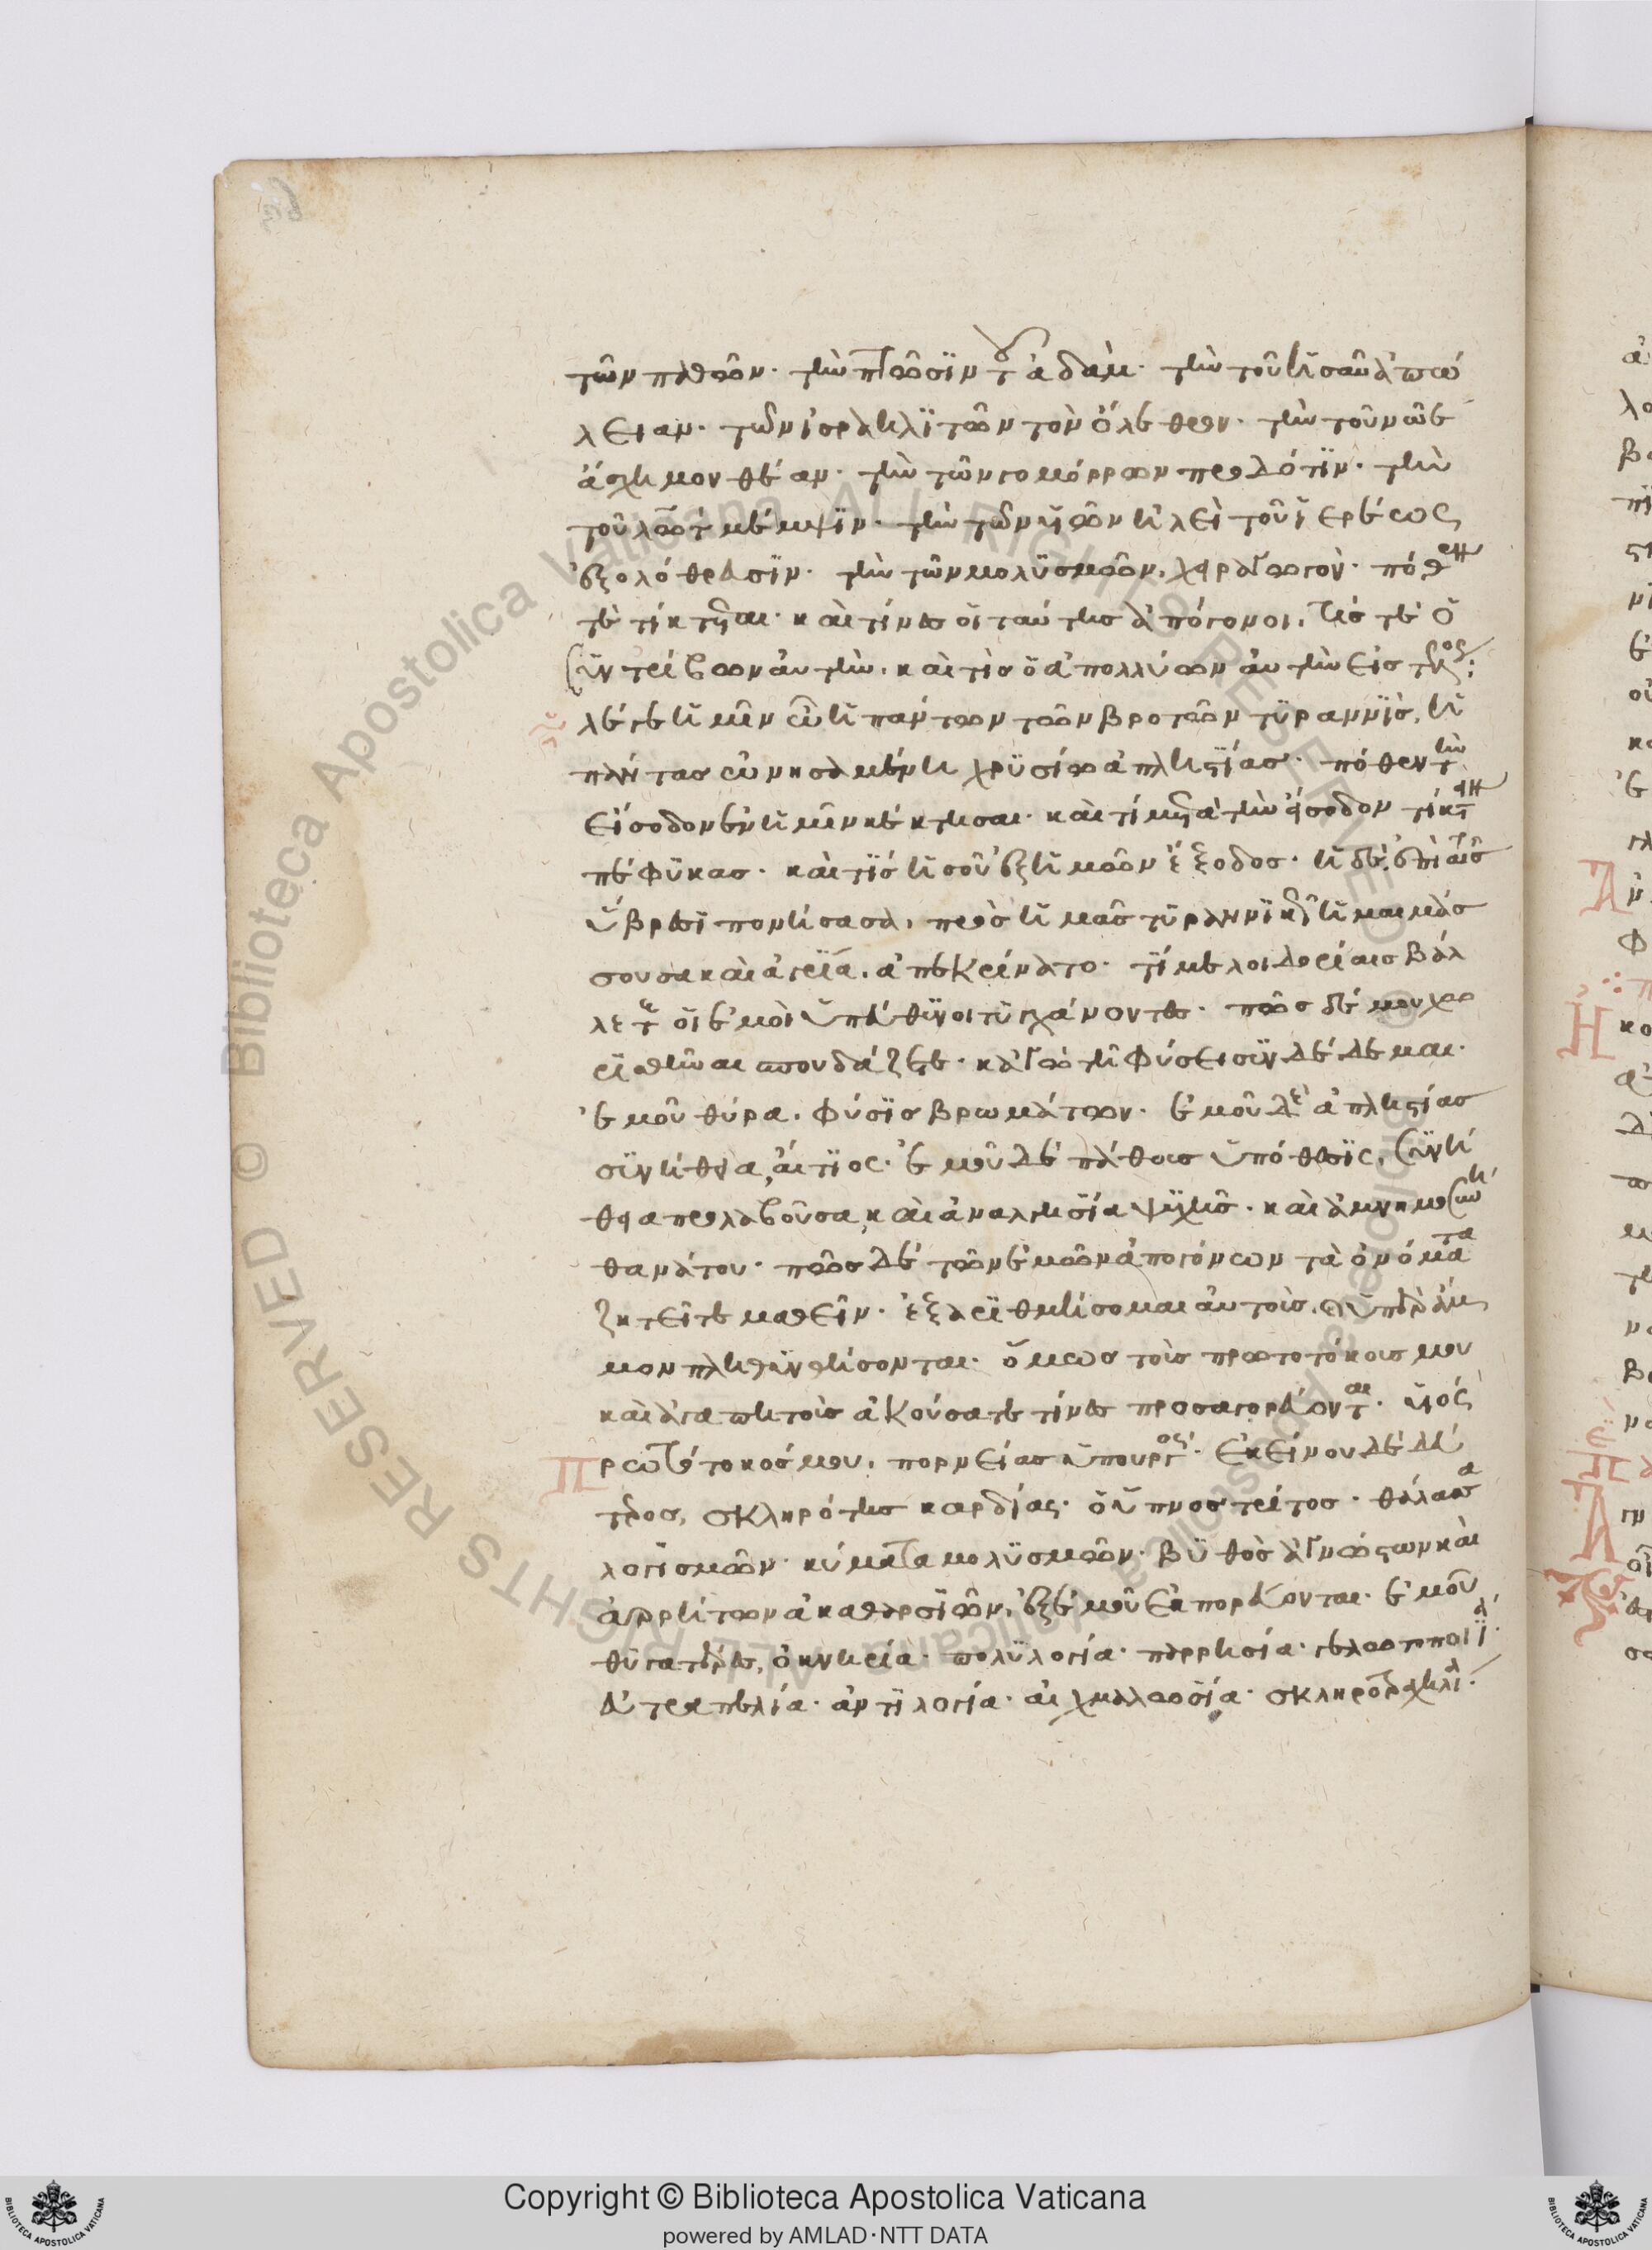 τῶν παθῶν· τὴν πτῶσϊν τοῦ ἀδὰμ· τὴν τοῦ ἠσαῦ ἀπώ
λειαν· τῶν ἰσραηλϊτῶν τὸν ὄλεθρον· τὴν τοῦ νῶε
ἀσχημονθέαν· τὴν τῶν γομόρρων προδότϊν· τὴν
τοῦ λῶτ μέμψϊν· τὴν τῶν ϋἱῶν ἠλεὶ τοῦ ἱερέως
ἐξολόθρευσϊν· τὴν τῶν μολϋσμῶν, χειραγωγόν· πόθεν
τὲ τίκτεται· καὶ τίνες οἱ ταύτης ἀπόγονοι, τίς τὲ ὁ
συντρίβων αὐτὴν, καὶ τὶς ὁ ἀπολλύων αὐτὴν εἰς τέλος;
λέγε ἡμῖν ὦ ἡ πάντων τῶν βροτῶν τϋραννϊς, ἡ
πάντας ὠνησαμένη χρϋσίω ἀπληστίας· πόθεν τὴν
εἴσοδον ἐν ἡμῖν κέκτησαι· καὶ τί μετὰ τὴν εἴσοδον τίκτειν
πέφϋκας· καὶ τΐς ἡ σοῦ ἐξ ἡμῶν ἔξοδος· ἡ δὲ, ἐπὶ ταῖς
ὕβρεσϊ πονήσασα, πρὸς ἡμᾶς τϋραννϊκῶς ἡμαιμάσ
σουσα καὶ ἀγρΐα, ἀπεκρίνατο· τί με λοιδορίαις βάλ
λετε οἱ ἐμοὶ ὑπεύθϋνοι τϋγχάνοντες· πῶς δέ μου χω
ρϊσθῆναι σπουδάζετε· κἀγὼ τῆ φύσει σϋνδέδεμαι·
ἐμοῦ θύρα, φύσϊς βρωμάτων· ἐμοῦ δὲ ἀπληστίας
σϋνήθεια, αἴτϊος· ἐμοῦ δὲ πάθους ὑπόθεσϊς, σϋνή
θεια προλαβοῦσα, καὶ ἀναλγησΐα ψϋχῆς· καὶ ἀμνημοσύνη
θανάτου· πῶς δὲ τῶν ἐμῶν ἀπογόνων τὰ ὀνόματα
ζητεῖτε μαθεῖν· ἐξαρϊθμήσομαι αὐτοὶς, καὶ ὑπὲρ ἄμ
μον πληθϋνθήσονται· ὅμως τοὶς πρωτοτόκοις μου
καὶ ἀγαπητοὶς ἀκούσατε τίνες προσαγορεύονται· υἱός
πρωτότοκος μου, πορνείας ὑπουργός· ἐκείνου δὲ δεύ
τερος, σκληρότης καρδίας· ὁ ὕπνος τρίτος· θάλασσα
λογϊσμῶν· κύματα μολϋσμῶν· βϋθὸς ἀγνώστων καὶ
ἀρρήτων ἀκαθαρσϊῶν, ἐξ ἐμοῦ ἐκπορεύονται· ἐμοῦ
θϋγατέρες, ὀκνηρία· πολϋλογία· παρρησία· γελωτοποιΐα·
εὐτραπελία· ἀντϊλογία· αἰχμαλωσΐα· σκληροτραχηλΐα·